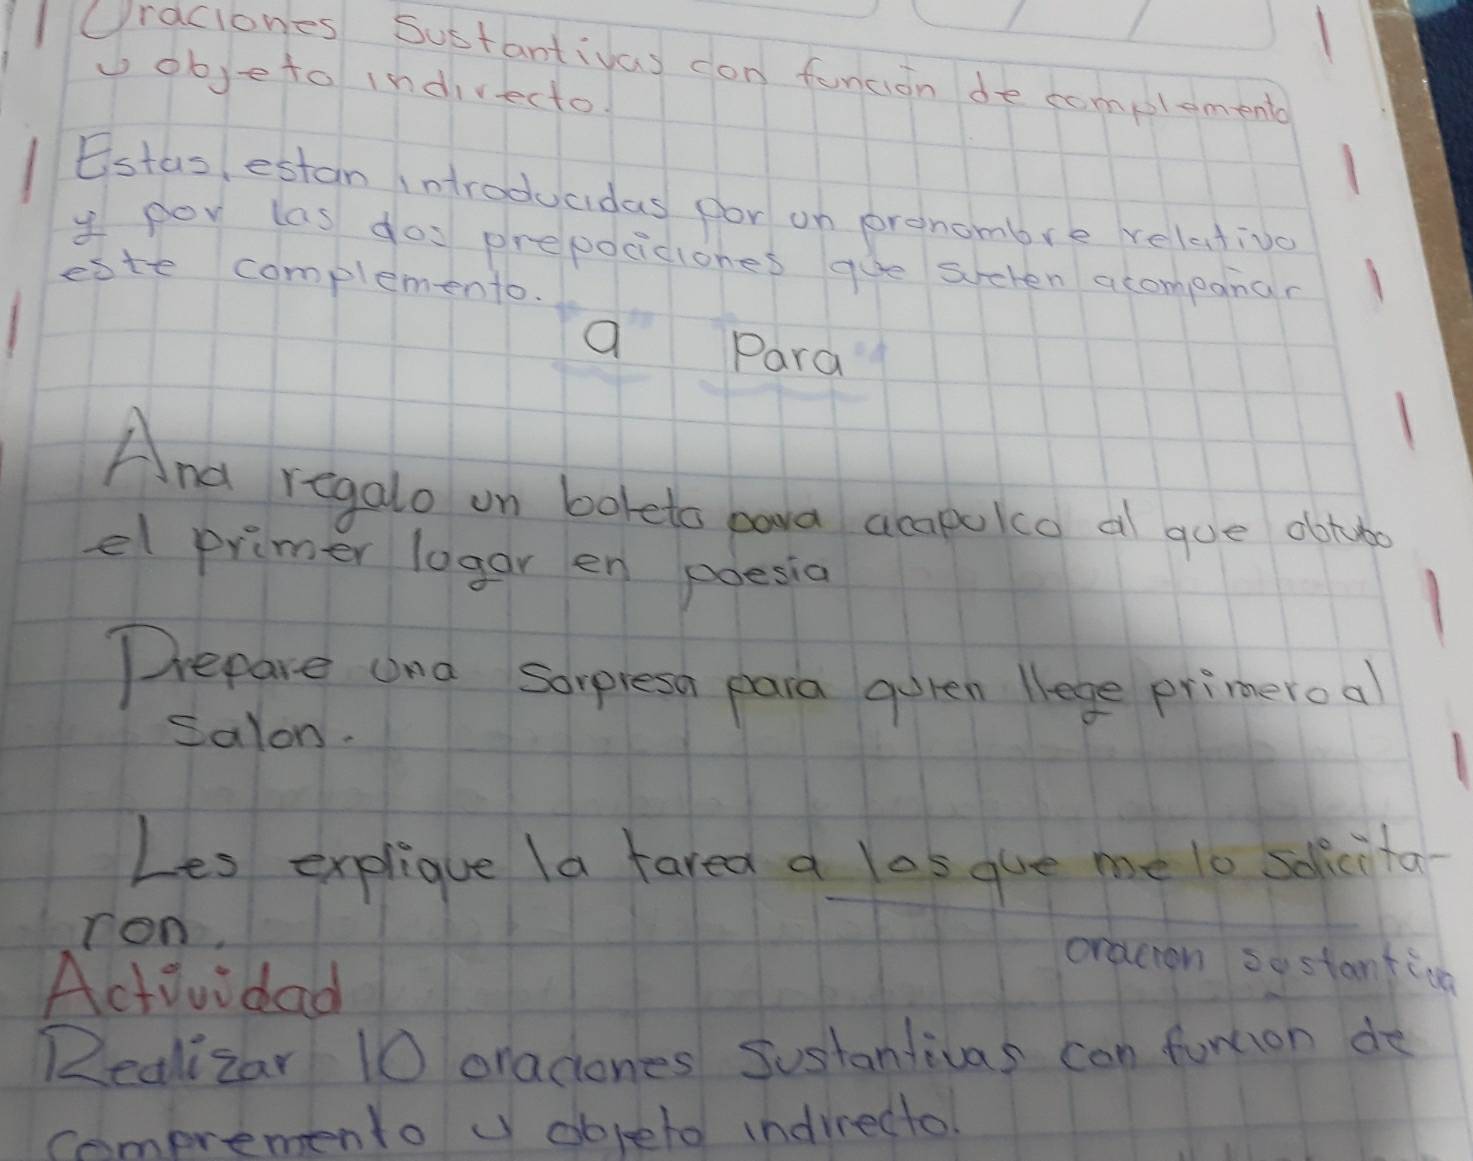 Oraciones Sustantivas con función de complemento
u objeto indirecto.
Estas, estan introducidas por un pronombre relativo
y por las dos prepociciones que suelen acompañar
este complemento.
a Para
Ana regalo un boleto para acapulco al que obtubo
el primer lugar en poesia
Prepare una sorpresa para quien llege primero al
salon.
Les explique la tarea a los que me lo solicita-
ron.
oración sustantiva
Actividad
Realizar 10 oraciones Sustantivas con funcion de
compremento u objeto indirecto.